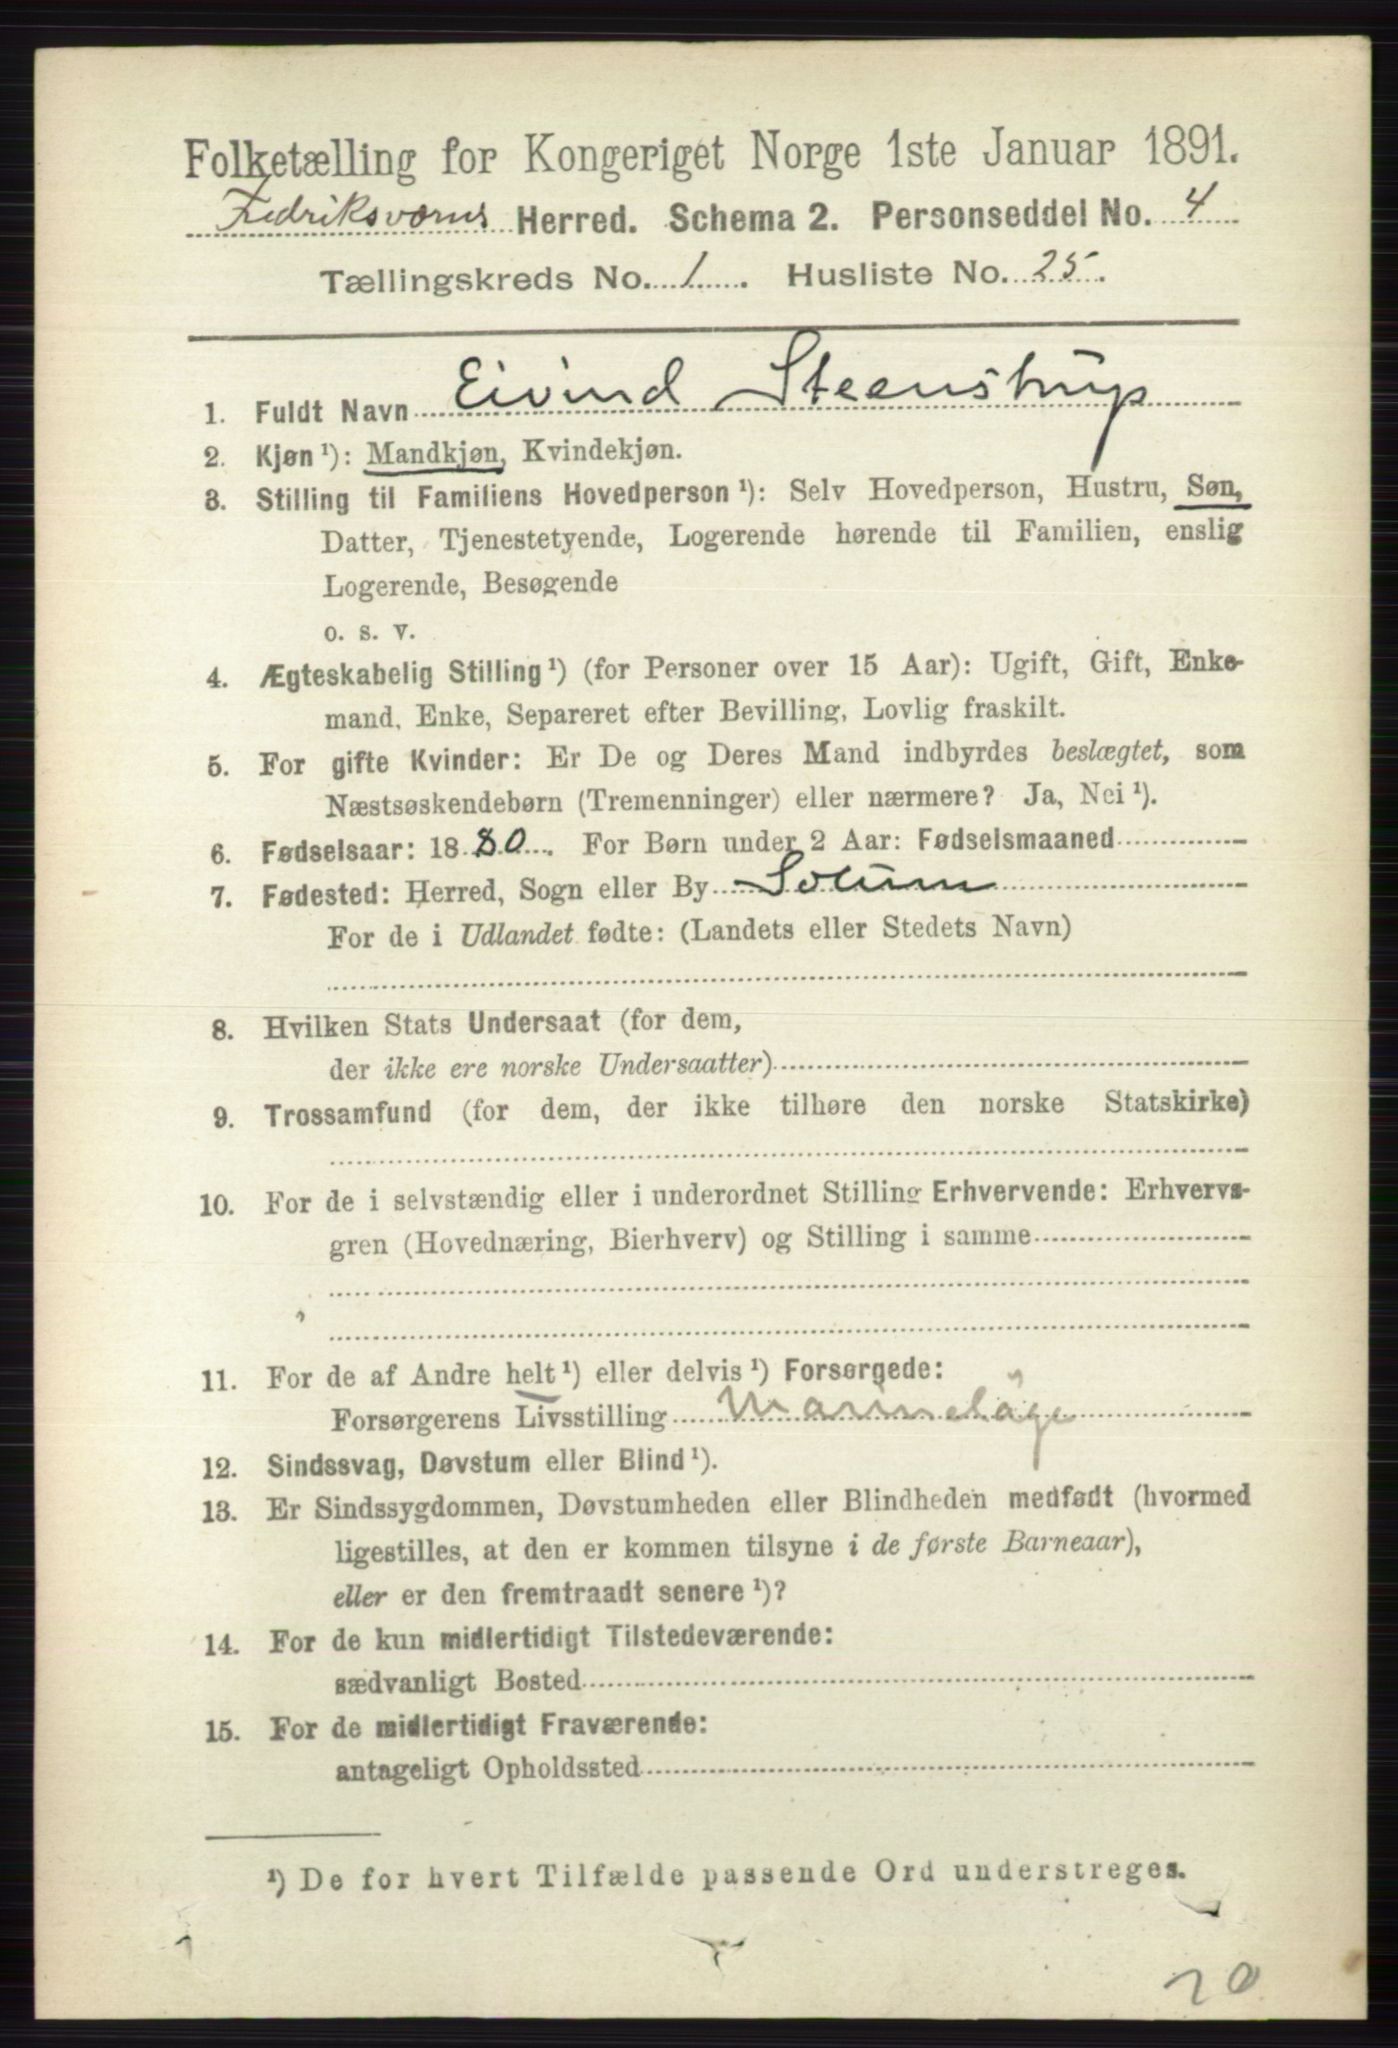 Folketælling for Kongeriget Norge 1ste Januar 1891.
Fredriksværns Herred. Schema 2. Personseddel No. 4
Tællingskreds No. 1. Husliste No. 25.
1. Fuldt Navn Eivind Steenstrup
2. Kjøn ¹): Mandkjøn, Kvindekjøn.
3. Stilling til Familiens Hovedperson ¹): Selv Hovedperson, Hustru, Søn,
Datter, Tjenestetyende, Logerende hørende til Familien, enslig
Logerende, Besøgende
o. s. v.
4. Ægteskabelig Stilling ¹) (for Personer over 15 Aar): Ugift, Gift, Enke-
mand, Enke, Separeret efter Bevilling, Lovlig fraskilt.
5. For gifte Kvinder: Er De og Deres Mand indbyrdes beslægtet, som
Næstsøskendebørn (Tremenninger) eller nærmere? Ja, Nei ¹).
6. Fødselsaar: 1880. For Børn under 2 Aar: Fødselsmaaned
7. Fødested: Herred, Sogn eller By Solum
For de i Udlandet fødte: (Landets eller Stedets Navn)
8. Hvilken Stats Undersaat (for dem,
der ikke ere norske Undersaatter)
9. Trossamfund (for dem, der ikke tilhøre den norske Statskirke)
10. For de i selvstændig eller i underordnet Stilling Erhvervende: Erhvervs-
gren (Hovednæring, Bierhverv) og Stilling i samme
11. For de af Andre helt ¹) eller delvis ¹) Forsørgede:
Forsørgerens Livsstilling Marinelæge
12. Sindssvag, Døvstum eller Blind ¹).
13. Er Sindssygdommen, Døvstumheden eller Blindheden medfødt (hvormed
ligestilles, at den er kommen tilsyne i de første Barneaar),
eller er den fremtraadt senere ¹)?
14. For de kun midlertidigt Tilstedeværende:
sædvanligt Bosted
15. For de midlertidigt Fraværende:
antageligt Opholdssted
¹) De for hvert Tilfælde passende Ord understreges.
20